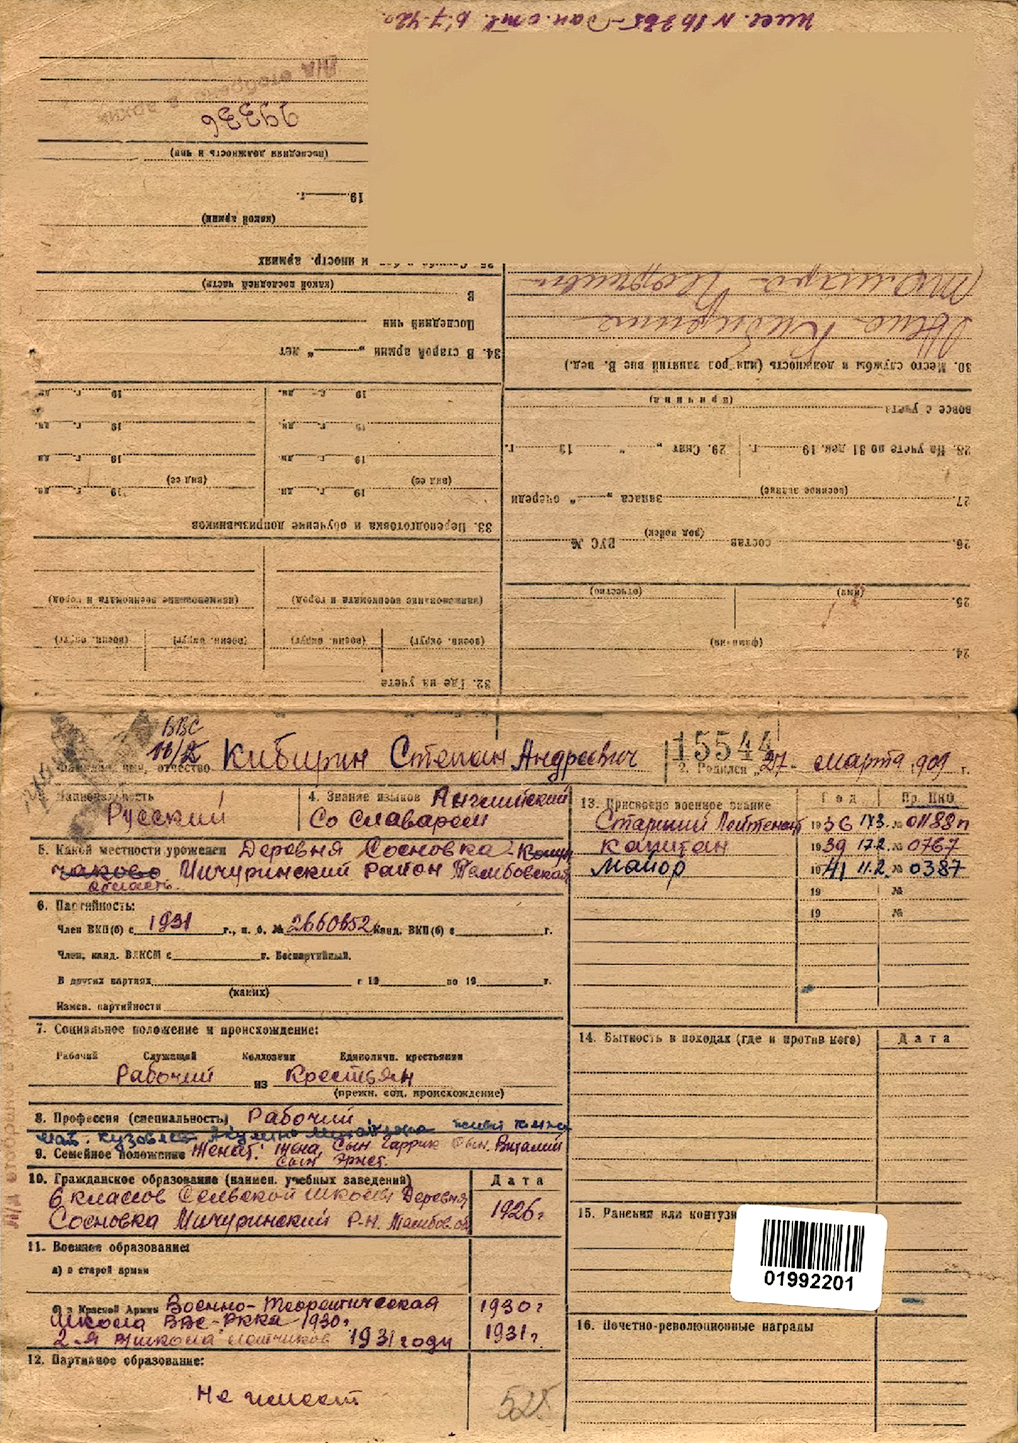 Исх. № 16765
99336
(последняя должность и чин)
19 г.
(какой армии)
и иностр. армиях
(какой последней части)
В
Последний чин
34. В старой армии „ “ лет
19 г. дн. 19 г. дн.
19 г. дн. 19 г. дн.
19 г. дн. 19 г. дн.
19 г. дн. 19 г. дн.
(вид ее) (вид ее)
33. Переподготовка и обучение допризывников
(наименование военкомата и город) (наименование военкомата и город)
(военн. округ) (военн. округ) (военн. округ) (военн. округ)
32. Где на учете
Жена Кибирина
30. Место службы и должность (или род занятий вне В. вед.)
(причина)
вовсе с учета
28. На учете по 31 дек. 19 г. 29. Снят „ “ 19 г.
(военное звание)
27. запаса „ “ очереди
26. состав (род войск) ВУС №
25. (имя) (отчество)
24. (фамилия)
ВВС
15544
1. Фамилия, имя, отчество Кибирин Степан Андреевич
2. Родился „27“ марта 1909 г.
3. Национальность Русский
4. Знание языков Английский
Со славарем
5. Какой местности уроженец Деревня Сосновка
Мичуринский район Тамбовская
область
6. Партийность:
Член ВКП(б) с 1931 г., п. б. № 2660652 Канд. ВКП(б) с г.
Член, канд. ВЛКСМ с г. Беспартийный.
В других партиях с 19 по 19 г.
(каких)
Измен. партийности
7. Социальное положение и происхождение:
Рабочий Служащий Колхозник Единоличн. крестьянин
Рабочий из Крестьян
(прежн. соц. происхождение)
8. Профессия (специальность) Рабочий
9. Семейное положение Женат: жена, Сын Гаррик Сын. Виталий
Сын Эрнст.
10. Гражданское образование (наимен. учебных заведений) Дата
6 классов Сельской школы Деревня
Сосновка Мичуринский Р-н. Тамбов. об 1926 г
11. Военное образование:
а) в старой армии
б) в Красной Армии Военно-Теоретическая 1930 г
Школа ВВС-РККА 1930 г.
2-я в/школа летчиков 1931 году 1931 г.
12. Партийное образование:
Не имеет
525
13. Присвоено военное звание Год Пр. НКО
Старший Лейтенант 1936 17.3. № 01188п
Капитан 1939 17.2. № 0767
Майор 1941 11.2. № 0387
19 №
19 №
14. Бытность в походах (где и против кого) Дата
15. Ранения или контузи
01992201
16. Почетно-революционные награды